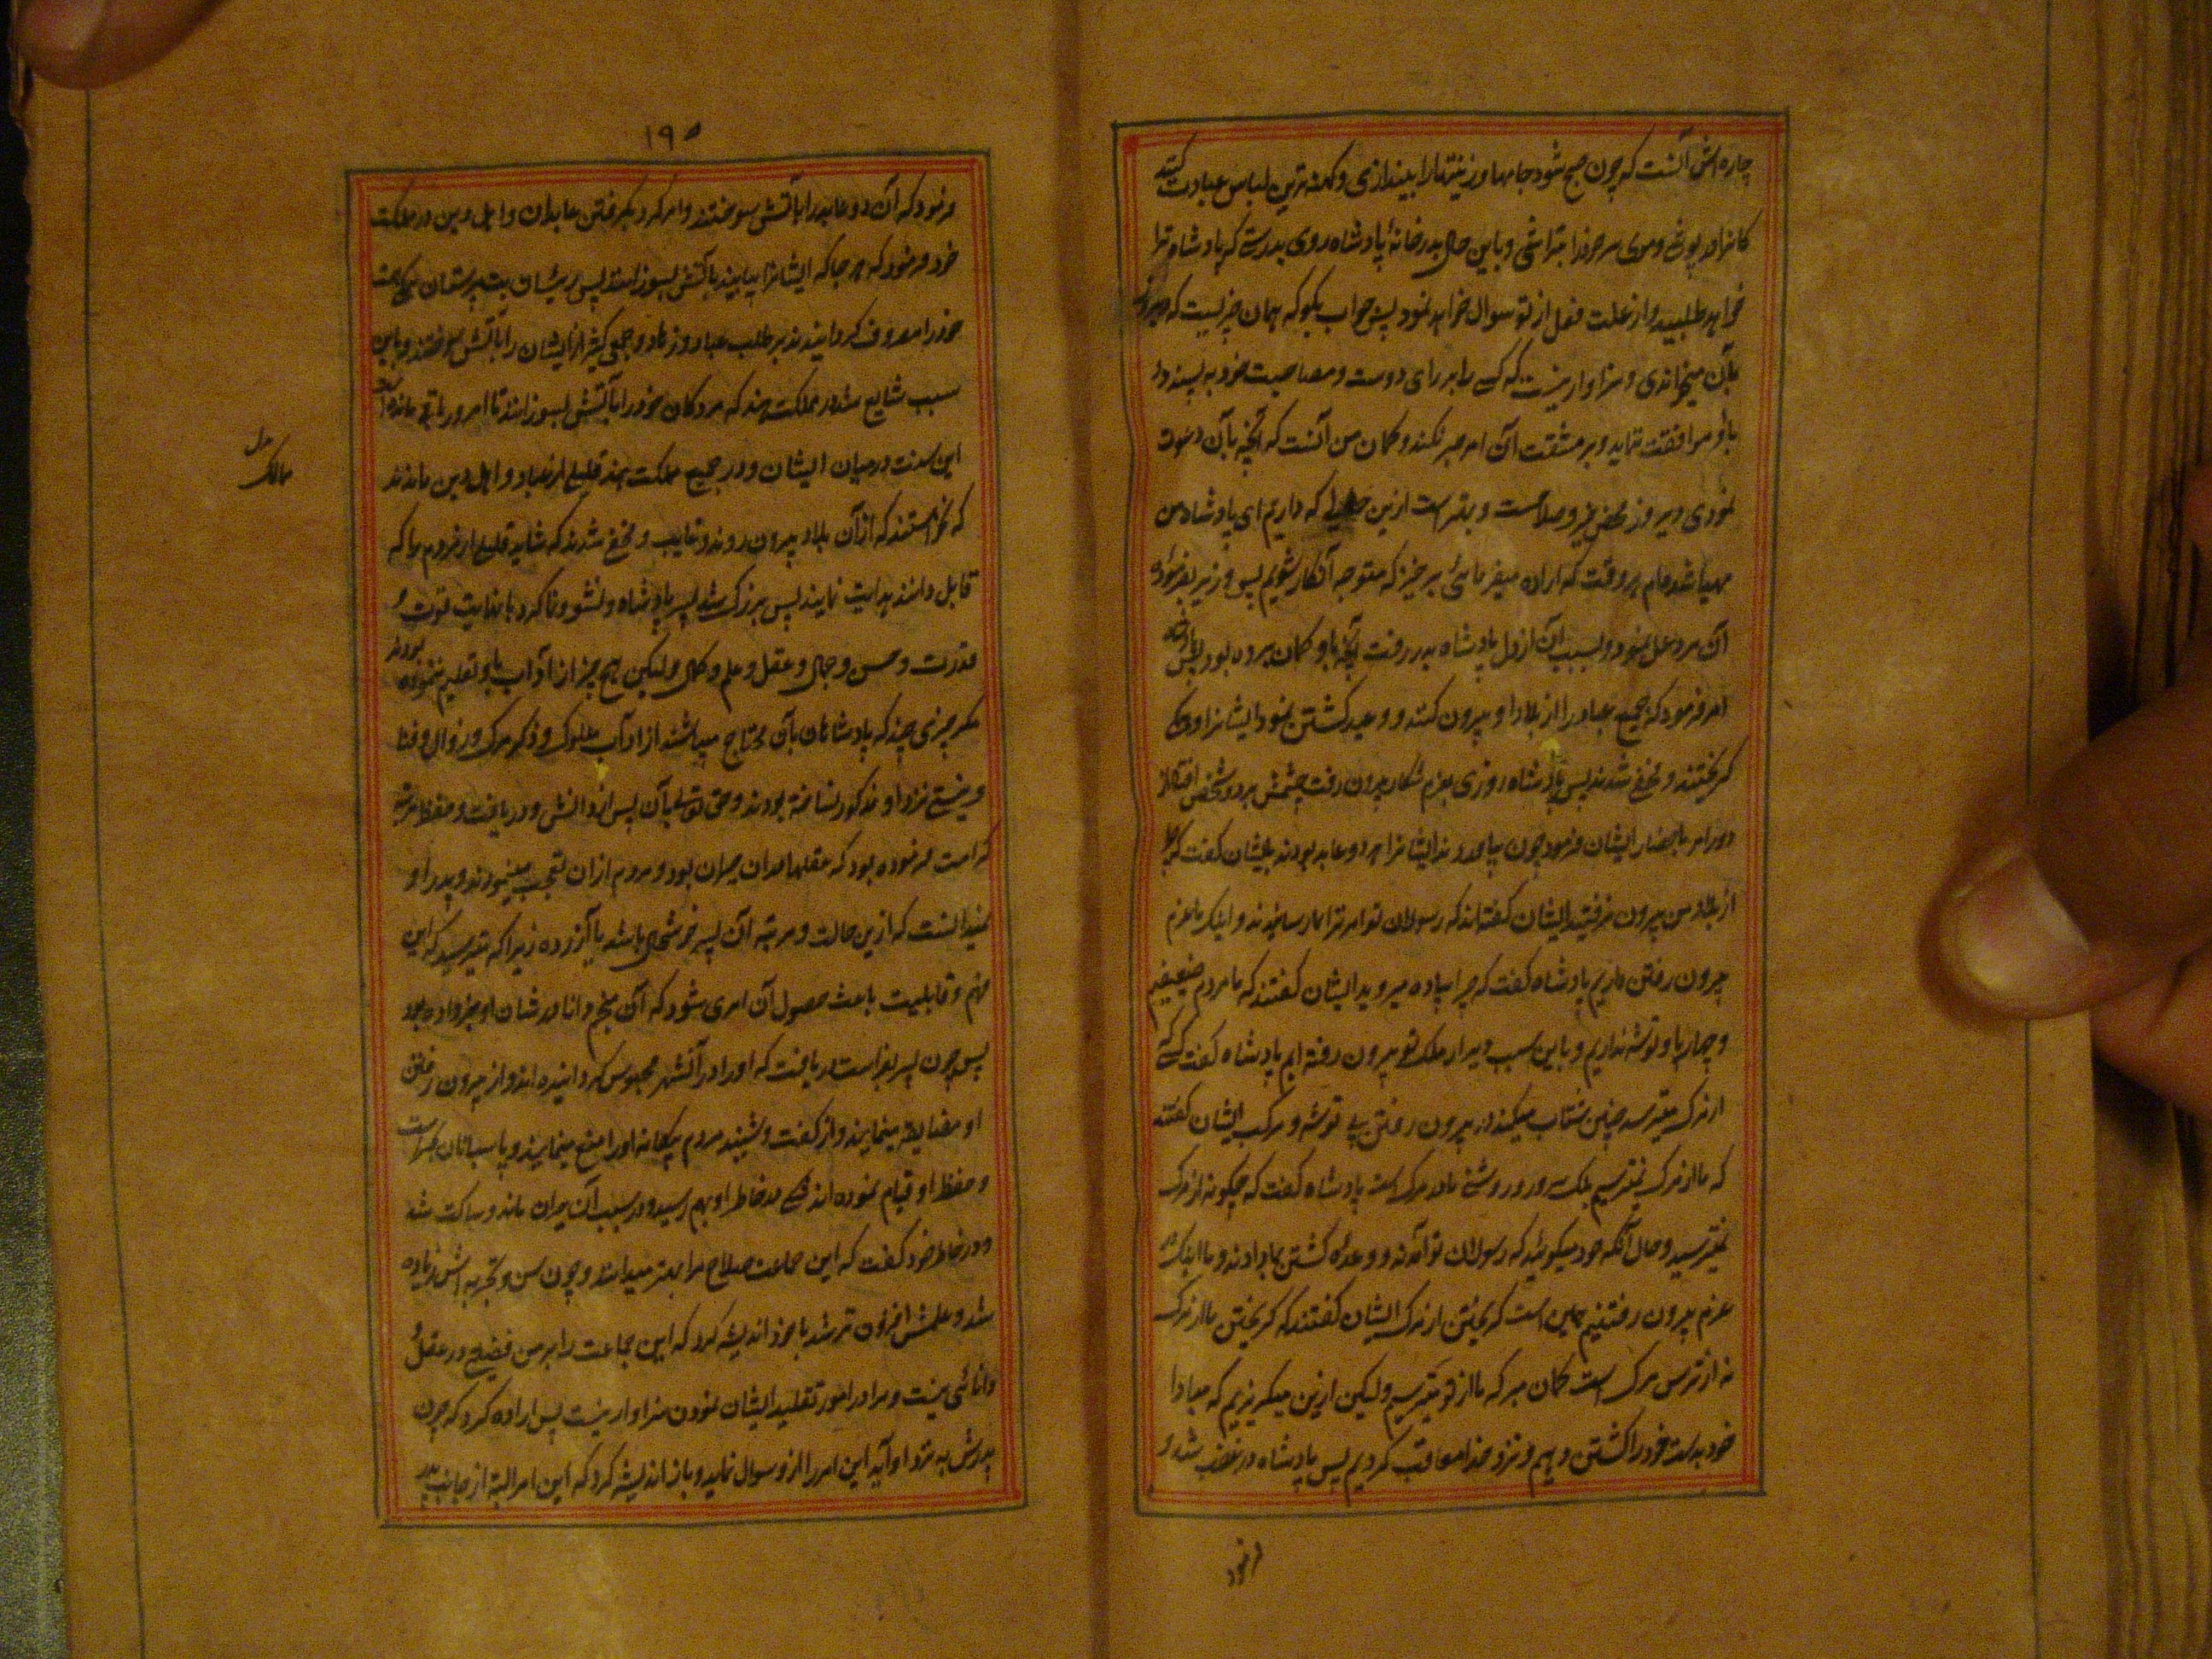 چاره اش آنست که چون صبح شود جامها و زینتها را بیندازی و کهنه ترین لباس عبادت کنندگانرا
در پوشی و موی سر خود را بتراشی و باین حال بدر خانهٔ پادشاه روی بدرستی که پادشاه ترا
خواهد طلبید و از علت فعل از تو سوال خواهد نمود پس جواب بگو که همان چیزیست که دیروز مرا
بآن میخواندی و سزاوار نیست که کسی را برای دوست و مصاحبت خود به پسندد
با او موافقت ننماید و بر مشقت آن امر صبر نکند و گمان من آنست که آنچه بآن دعوت
نمودی دیروز محض خیر و صلاحست و بهتر است ازین حال که داریم ای پادشاه من
مهیا شده ام هر وقت که اراده میفرمائی برخیز که متوجه آنکار شویم پس وزیر بفرمودهٔ
آن مرد عمل نمود و بسبب آن از دل پادشاه بدر رفت آنچه باو گمان برده بود پس پادشاه
امر فرمود که جمیع عباد را از بلاد او بیرون کنند و وعید کشتن نمود ایشانرا و همگی
گریختند و مخفی شدند پس پادشاه روزی بعزم شکار بیرون رفت چشمش بر دو شخص افتاد از
دور امر باحضار ایشان فرمود چون بیاوردند ایشانرا هر دو عابد بودند بایشان گفت که چرا
از بلاد من بیرون نرفتید ایشان گفتند که رسولان تو امر ترا بما رسانیدند و اینک ما عزم
بیرون رفتن داریم پادشاه گفت که چرا پیاده میروید ایشان گفتند که ما مردم ضعیفیم
و چهارپا و توشه نداریم و باین سبب دیر از ملک تو بیرون رفته ایم پادشاه گفت کسی که
از مرگ میترسد چنین شتاب میکند در بیرون رفتن بی توشه و مرکب ایشان گفتند
که ما از مرگ نمیترسیم بلکه سرور و روشنی ما در مرگ است پادشاه گفت که چگونه از مرگ
نمیترسید و حال آنکه خود میگوئید که رسولان تو آمدند و وعدهٔ کشتن بما دادند و ما اینک در
عزم بیرون رفتنیم همین است گریختن از مرگ ایشان گفتند که گریختن ما از مرگ
نه از ترس مرگ است گمان مبر که ما از تو میترسیم ولیکن ازین میگریزیم که مبادا
خود بدست خود را کشتن دهیم و نزد خدا معاقب گردیم پس پادشاه در غضب شد و
فرمود
۱۹۵
فرمود که آن دو عابد را بآتش سوختند و امر کرد بگرفتن عابدان و اهل دین در مملکت
خود و فرمود که هر جا که ایشانرا بیابند بآتش بسوزانند پس رئیسان بت پرستان همگی همت
خود را مصروف گردانیدند بر طلب عباد و زهاد و جمعی کثیر از ایشان را بآتش سوختند و باین
سبب شایع شد در مملکت هند که مردگان خود را بآتش بسوزانند تا امروز باقی مانده است
این سنت در میان ایشان و در جمیع مملکت هند قلیلی از عباد و اهل دین ماندند
که نخواستند که از آن بلاد بیرون روند و غایب و مخفی شدند که شاید قلیلی از مردم را که
قابل دانند هدایت نمایند پس بزرگ شد پسر پادشاه و نشو و نما کرد با نهایت قوت و
قدرت و حسن و جمال و عقل و علم و کمال ولیکن هیچ چیز از آداب باو تعلیم ننموده بودند
مگر چیزی چند که پادشاهان بآن محتاج میباشند از آداب ملوک و ذکر مرگ و زوال و فنا
و نیستی نزد او مذکور نساخته بودند و حق تعالی بآن پسر از دانش و دریافت و حفظ مرتبه
کرامت فرموده بود که عقلها در آن حیران بود و مردم از آن تعجب مینمودند و پدر او
نمیدانست که ازین حالت و مرتبه آن پسر خوشحال باشد یا آزرده زیرا که میترسید که این
فهم و قابلیت باعث حصول آن امری شود که آن منجم دانا در شان او خبر داده بود
پس چون پسر بفراست دریافت که او را در آنشهر محبوس گردانیده اند و از بیرون رفتن
او مضایقه مینمایند و از گفت و شنید مردم بیگانه او را منع مینمایند و پاسبانان بحراست
و حفظ او قیام نموده اند شکی در خاطر او بهم رسید و در سبب آن حیران ماند و ساکت شد
و در خاطر خود گفت که این جماعت صلاح مرا بهتر میدانند و چون سن و تجربه اش زیاده
شد و علمش افزون تر شد با خود اندیشه کرد که این جماعت را بر من فضیلتی در عقل و
دانائی نیست و مرا در امور تقلید ایشان نمودن سزاوار نیست پس اراده کرد که چون
پدرش به نزد او آید این امر را از او سوال نماید و باز اندیشه کرد که این امر البته از جانب پدر
ممالک